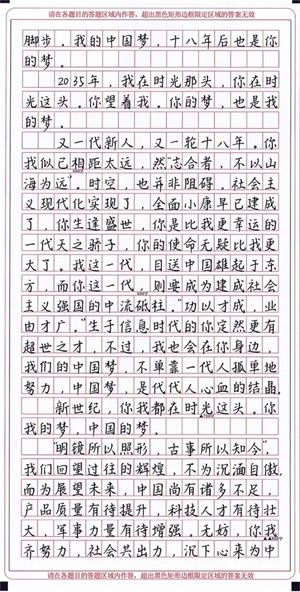 请在各题目的答题区域内作答，超出黑色矩形边框限定区域的答案无效
脚步。我的中国梦，十八年后也是你
的梦。
2035年，我在时光那头，你在时
光这头。你望着我。你的梦，也是我
的梦。
又一代新人，又一轮十八年。你
我似已相距太远，然“志合者，不以山
海为远”。时空，也并非阻碍。社会主
义现代化实现了，全面小康早已建成
了，你生逢盛世，你是比我更幸运的
一代天之骄子，你的使命无疑比我更
大了。我这一代，目送中国雄起于东
方，而你这一代，则要成为建成社会
主义强国的中流砥柱。“功以才成，业
由才广。”生于信息时代的你定然更有
超世之才，不过，我也会在你身边，
我们的中国梦，不单靠一代人孤单地
努力，中国梦，是代代人心血的结晶。
新世纪，你我都在时光这头。你
我的梦，中国的梦。
“明镜所以照形，古事所以知今”，
我们回望过往的辉煌，不为沉湎自傲，
而为展望未来，中国尚有诸多不足，
产品质量有待提升，科技人才有待壮
大，军事力量有待增强。无妨，你我
齐努力，社会共出力，沉下心来为中
请在各题目的答题区域内作答，超出黑色矩形边框限定区域的答案无效